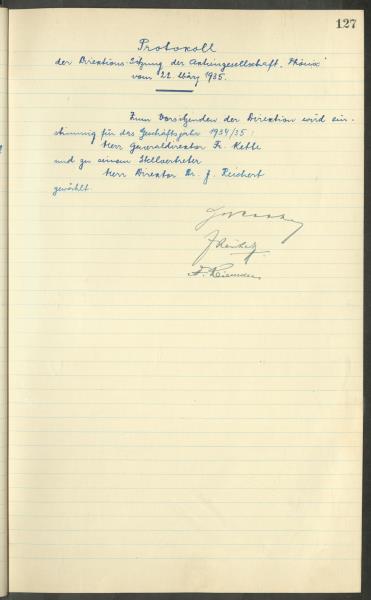 127
Protokoll
der Direktions-Sitzung der Aktiengesellschaft „Phönix"
vom 22. März 1935.
Zum Vorsitzenden der Direktion wird ein-
stimmig für das Geschäftsjahr 1934/35:
Herr Generaldirektor Fr.
und zu seinem Stellvertreter
Herr Direktor Dr. J. Reichert
gewählt.